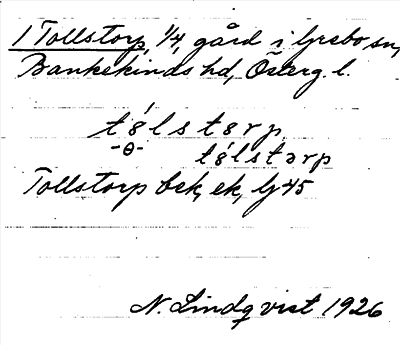 1 Tollstorp, 1/4, gård i Grebo sn,
Bankekinds hd, Österg. l.
tɵ́lstɵrp
-ɵ-
tɵ́lstərp
Tollstorp bek, ek, Gj 45
N. Lindqvist 1926